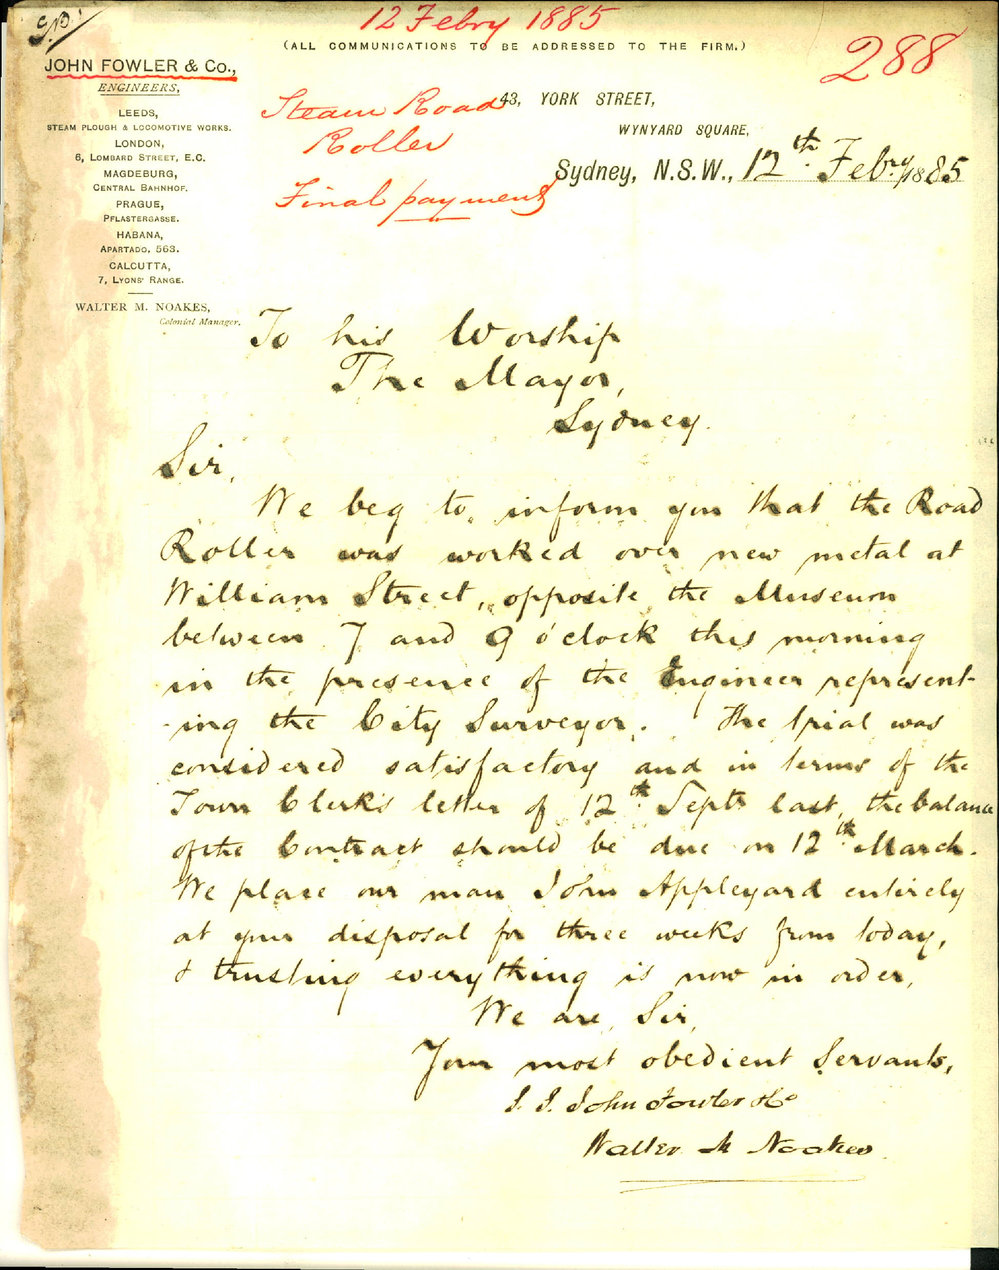 12 Febry 1885
(ALL COMMUNICATIONS TO BE ADDRESSED TO THE FIRM.)
288
JOHN FOWLER & Co.,
ENGINEERS,
LEEDS,
STEAM PLOUGH & LOCOMOTIVE WORKS.
LONDON,
6, LOMBARD STREET, E.C.
MAGDEBURG,
CENTRAL BAHNHOF.
PRAGUE,
PFLASTERGASSE.
HABANA,
APARTADO, 563.
CALCUTTA,
7, LYONS' RANGE.
WALTER M. NOAKES,
Colonial Manager.
Steam Road
Roller
Final payment
43, YORK STREET,
WYNYARD SQUARE,
Sydney, N.S.W., 12th Febry 1885
To his Worship
The Mayor,
Sydney.
Sir,
We beg to inform you that the Road
Roller was worked over new metal at
William Street, opposite the Museum
between 7 and 9 o'clock this morning
in the presence of the Engineer represent-
-ing the City Surveyor. The trial was
considered satisfactory and in terms of the
Town Clerk's letter of 12th Septr last, the balance
of the Contract should be due on 12th March.
We place our man John Appleyard entirely
at your disposal for three weeks from today,
& trusting everything is now in order,
We are, Sir,
Your most obedient Servants,
John Fowler & Co
Walter M Noakes